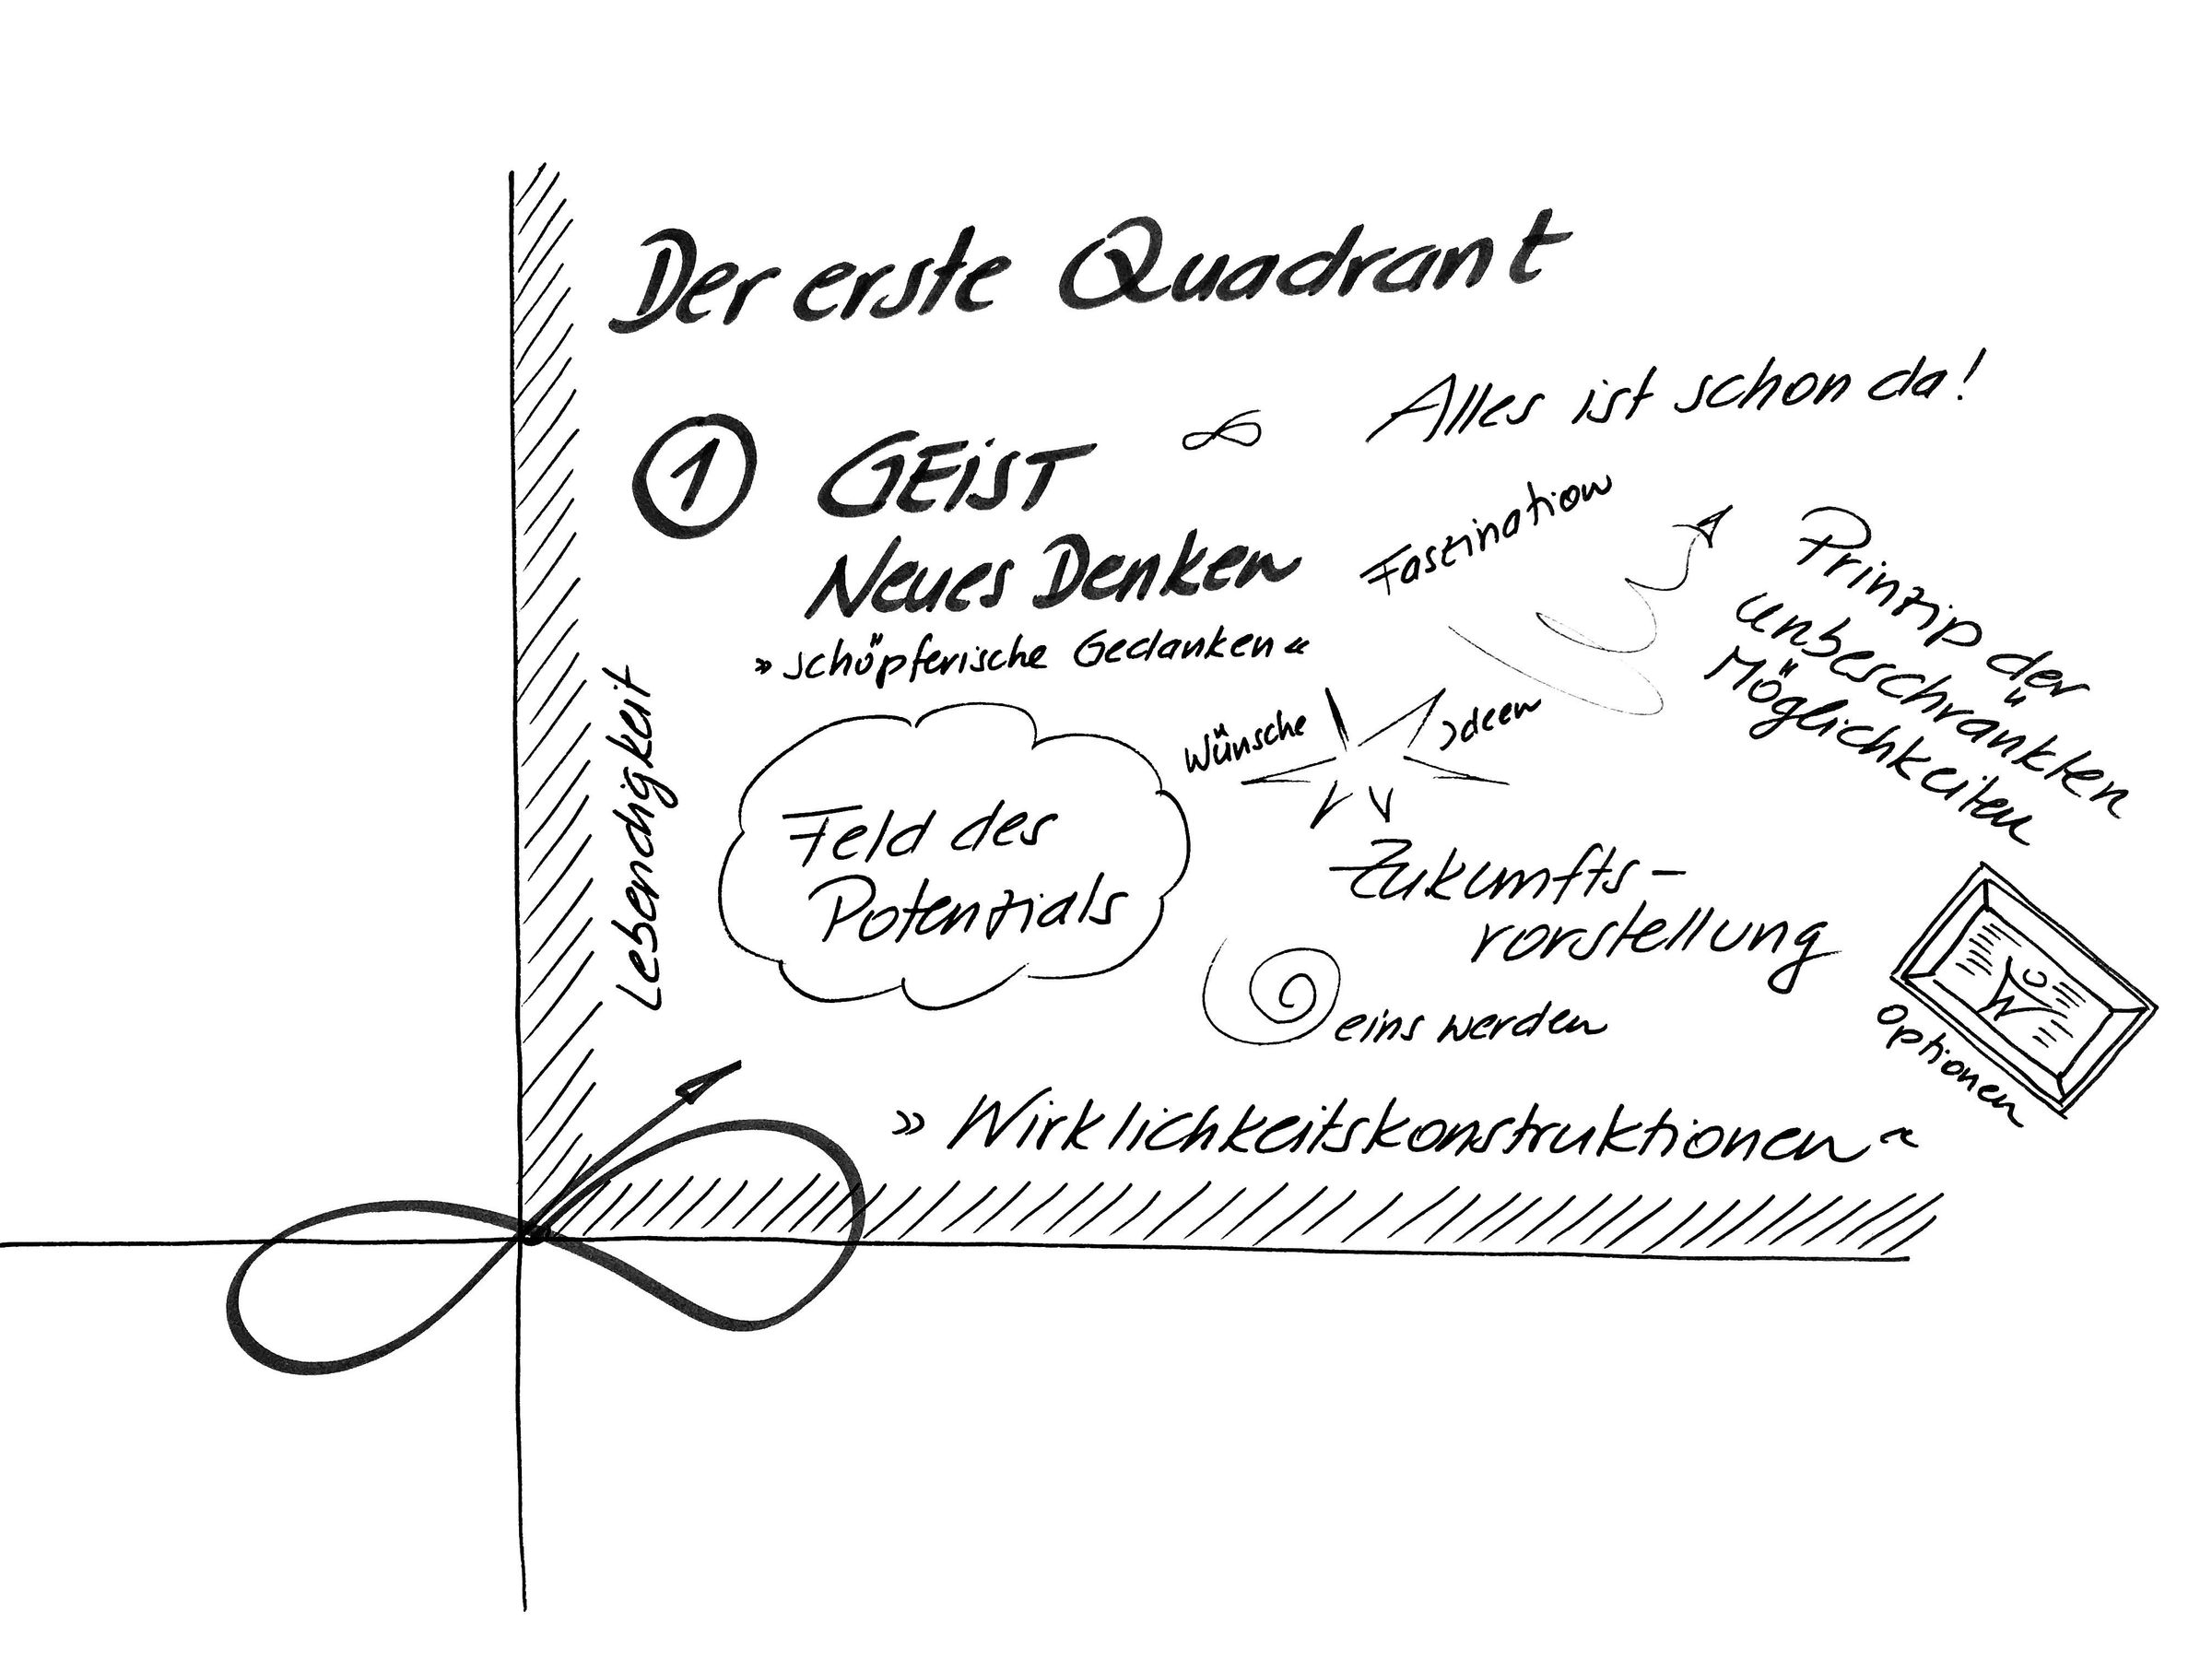 Der erste Quadrant
Alles ist schon da!
1 GEiST
Faszination
Neues Denken
» schöpferische Gedanken «
Prinzip der
unbeschränkten
Möglichkeiten
Lebendigkeit
Wünsche
Ideen
Feld des
Potenzials
Zukunfts-
vorstellung
eins werden
Optionen
» Wirklichkeitskonstruktionen «